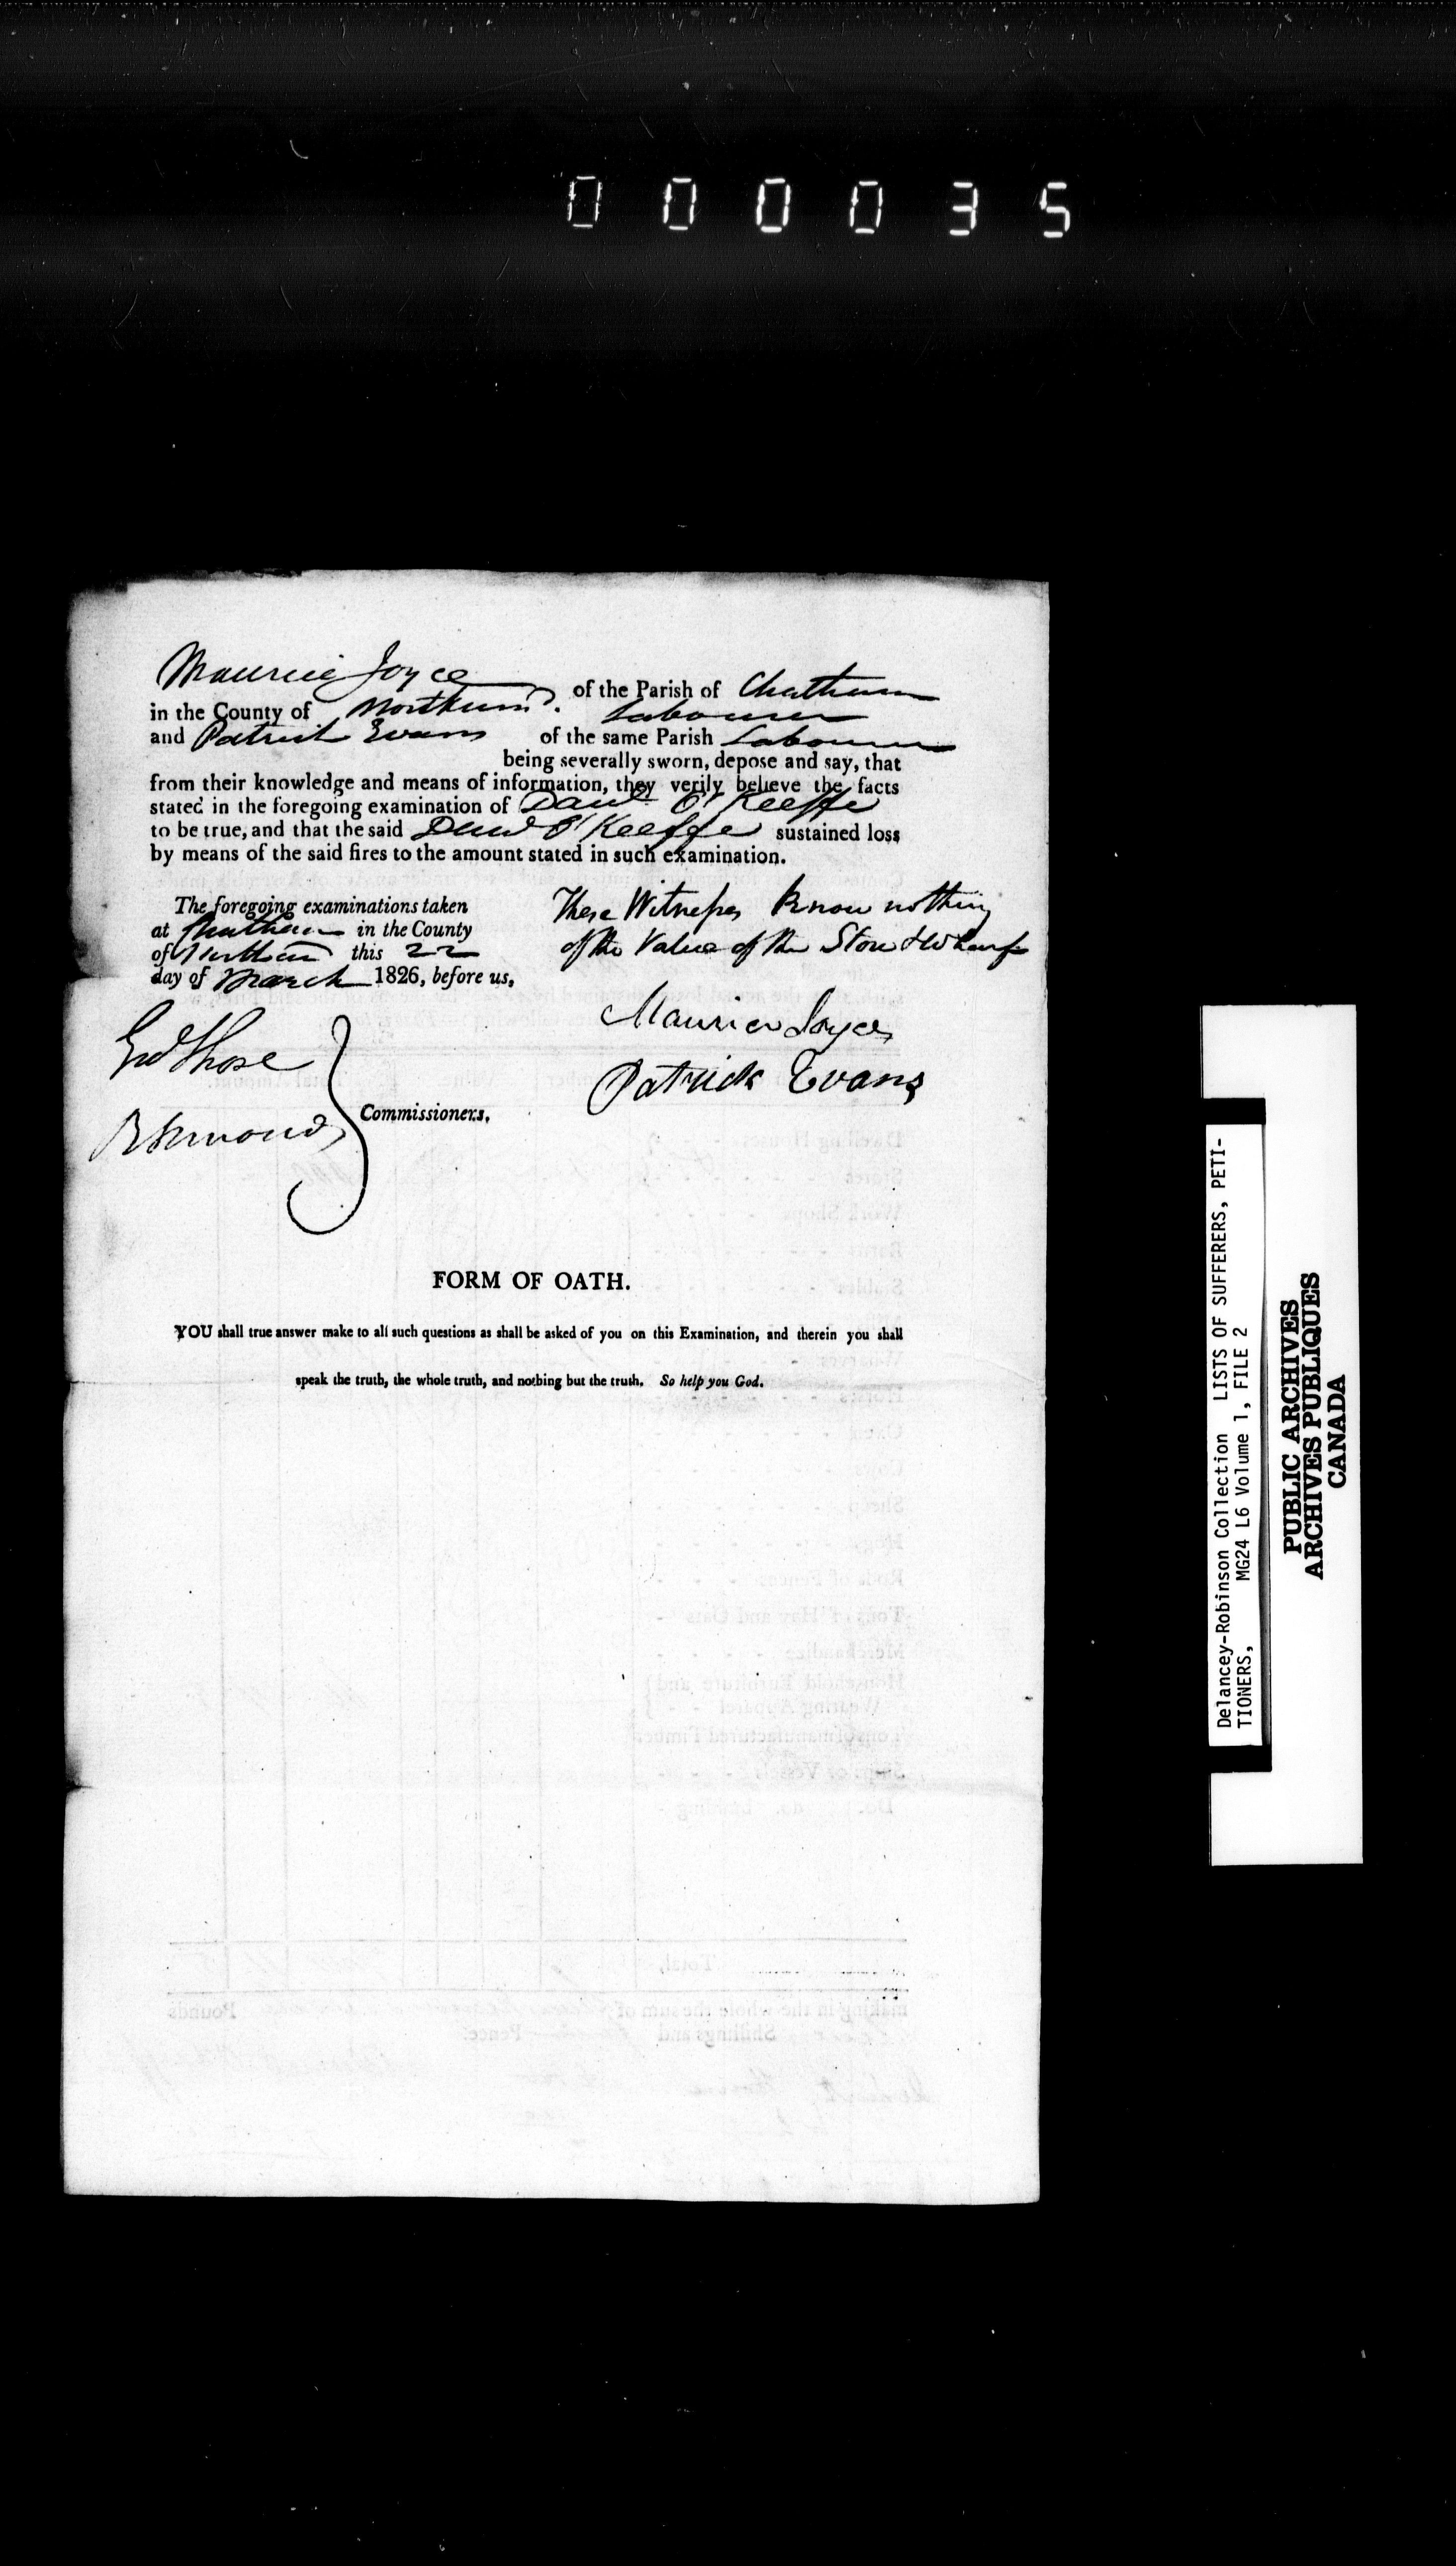 000035
Maurice Joyce of the Parish of Chatham
in the County of Northumd. Labourer
and Patrick Evans of the same Parish Labourer
being severally sworn, depose and say, that
from their knowledge and means of information, they verily believe the facts
stated in the foregoing examination of David O'Keeffe
to be true, and that the said David O'Keeffe sustained loss
by means of the said fires to the amount stated in such examination.
The foregoing examinations taken
at Chatham in the County
of this 22
day of March 1826, before us,
These Witnesses Know nothing
of the Value of the Store & Wharf
Maurice Joyce
Patrick Evans
Commissioners.
FORM OF OATH.
YOU shall true answer make to all such questions as shall be asked of you on this Examination, and therein you shall
speak the truth, the whole truth, and nothing but the truth. So help you God.
Delancey-Robinson Collection LISTS OF SUFFERERS, PETI-
TIONERS, MG24 L6 Volume 1, FILE 2
PUBLIC ARCHIVES
ARCHIVES PUBLIQUES
CANADA